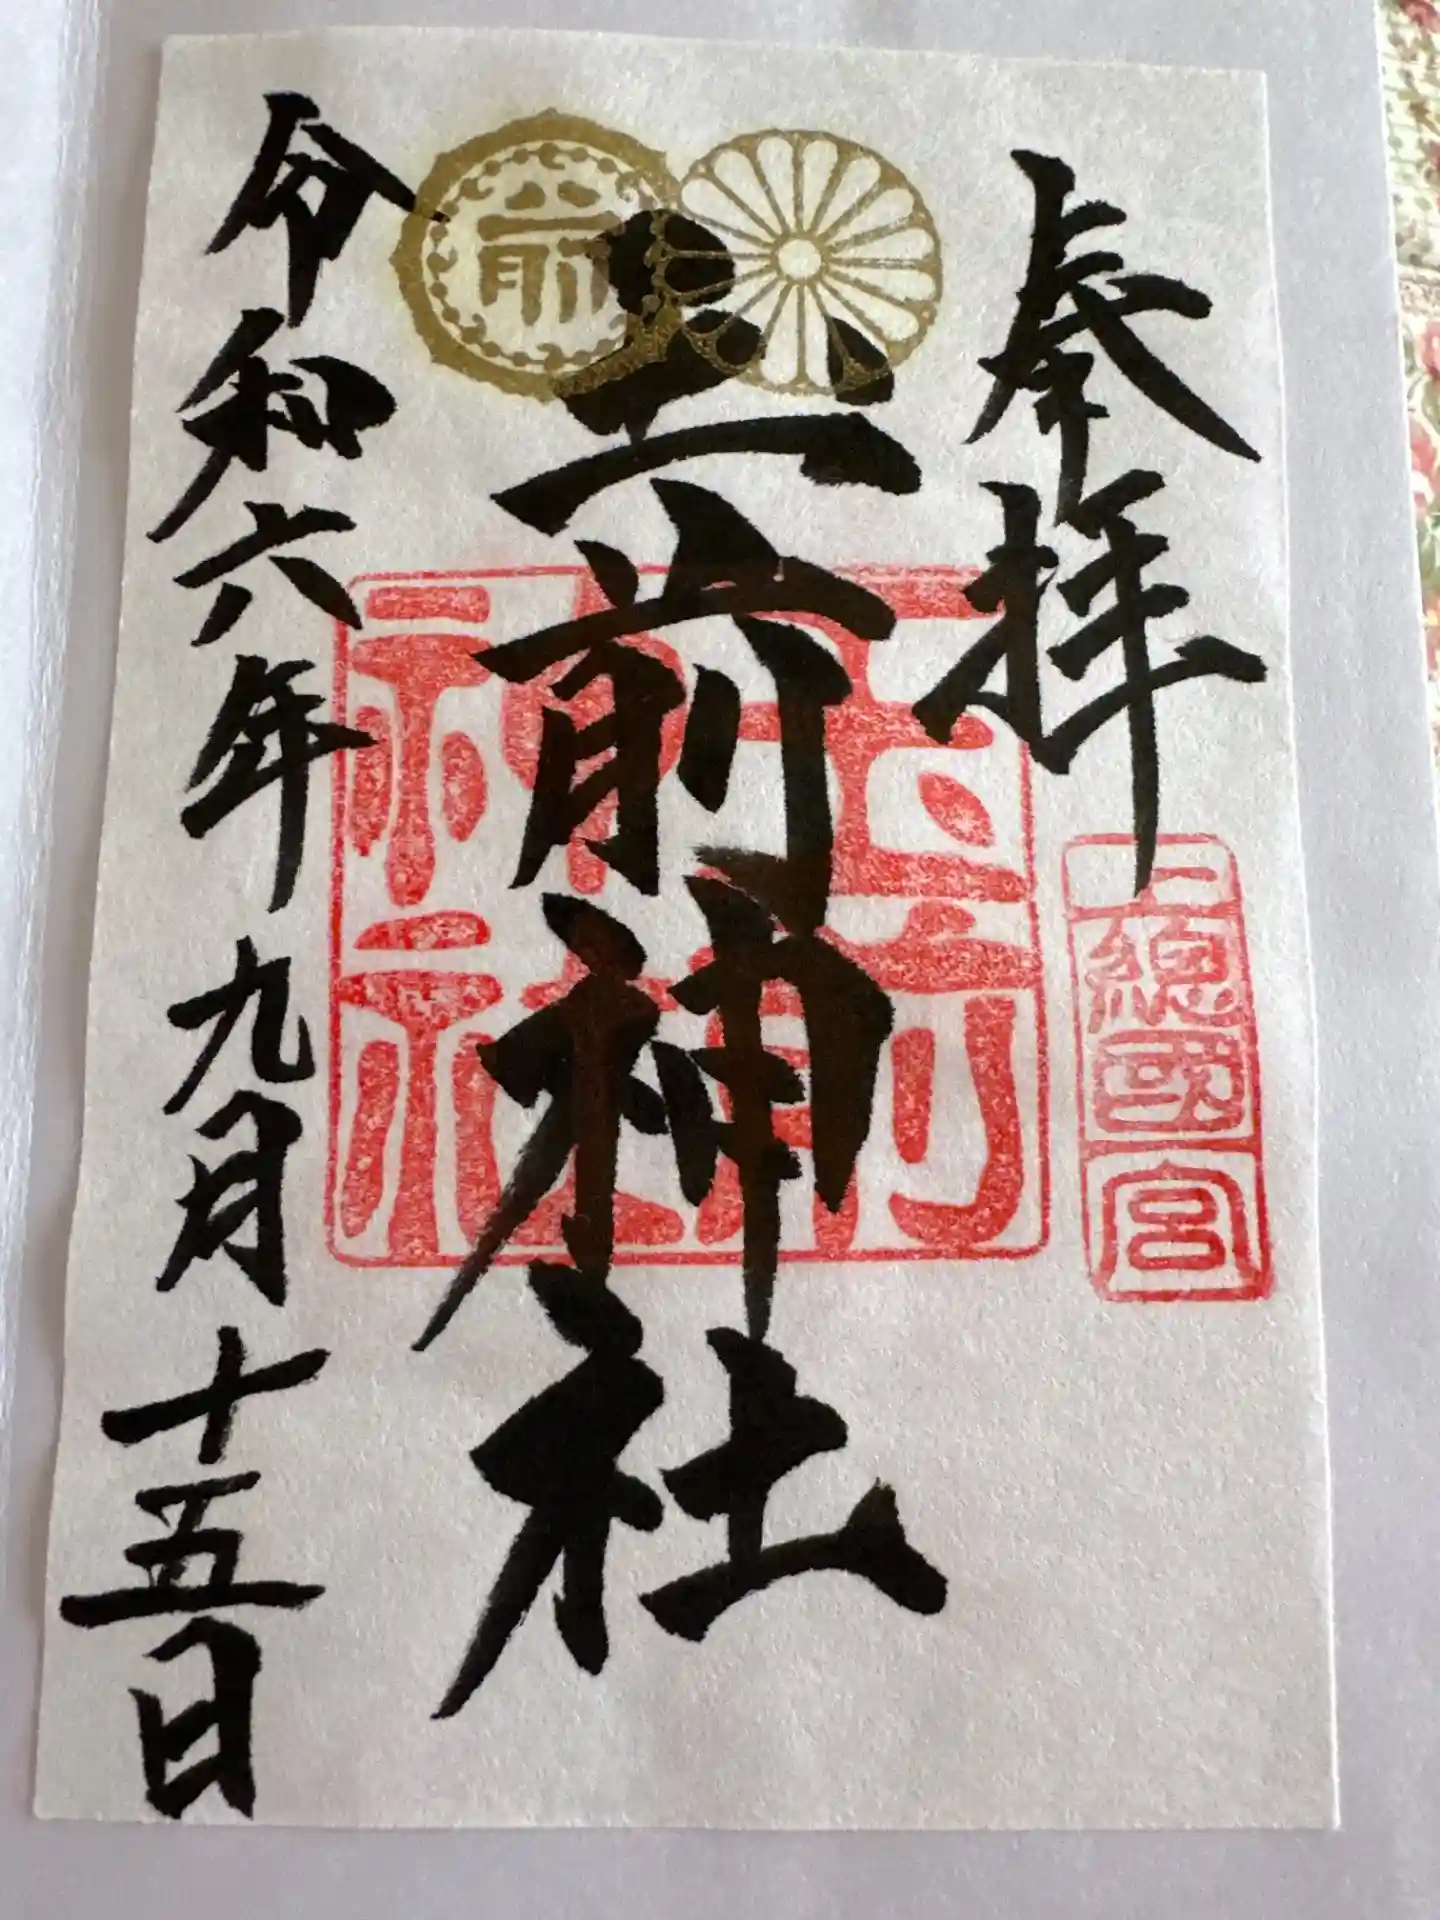 奉拝
上總國一宮
玉前神社
玉前神社
令和六年九月十五日